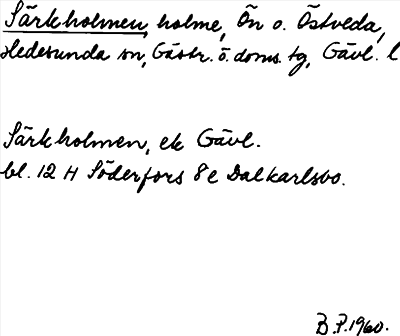 Särkholmen, holme, Ön o. Östveda,
Hedesunda sn, Gästr. ö. doms. tg, Gävl. l
Särkholmen, ek Gävl.
bl. 12 H Söderfors 8e Dalkarlsbo.
B.P. 1960.